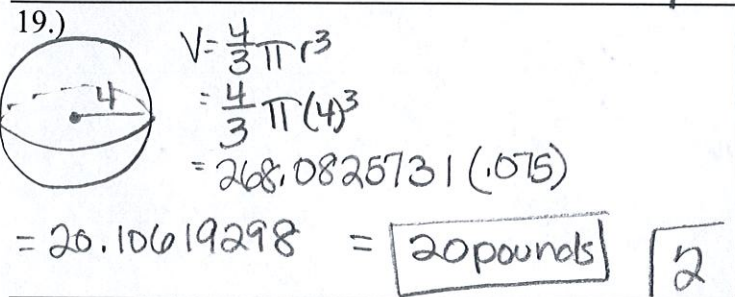 19.)
4
V = 4/3 π r³
= 4/3 π (4)³
= 268.0825731 (.075)
= 20.10619298 = 20 pounds
2